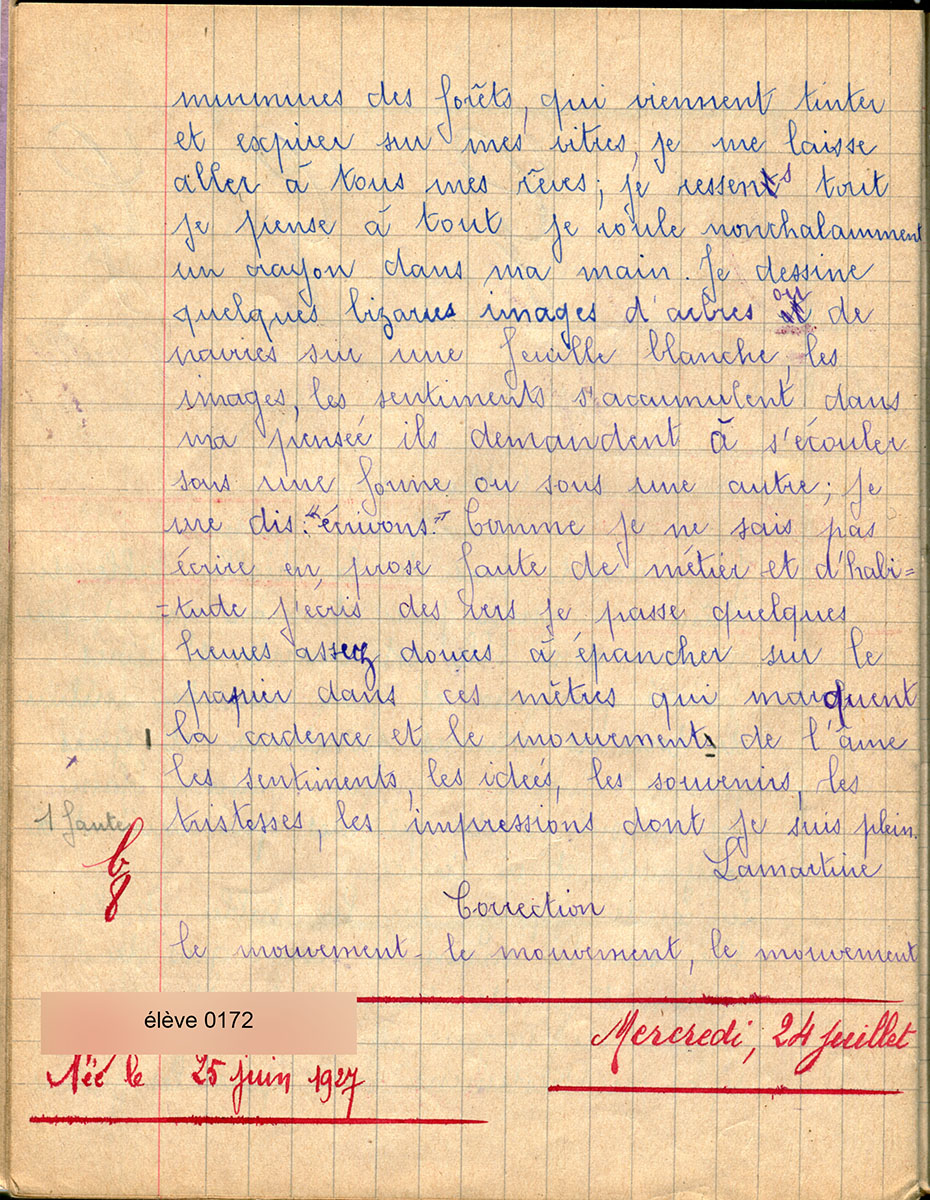 murmures des forêts, qui viennent tinter
et expirer sur mes vitres, je me laisse
aller à tous mes rêves; je ressens tout
je pense à tout je roule nonchalamment
un crayon dans ma main. Je dessine
quelques bizarres images d'arbres ou de
navires sur une feuille blanche, les
images, les sentiments s'accumulent dans
ma penseé ils demandent à s'écouler
sous une forme ou sous une autre; je
me dis: "écrivons". Comme je ne sais pas
écrire en prose faute de métier et d'habi=
=tude j'écris des vers je passe quelques
heures assez douces à épancher sur le
papier dans ces mètres qui marquent
la cadence et le mouvements de l'âme
les sentiments, les ideés, les souvenirs, les
1 faute tristesses, les impressions dont je suis plein.
b
8
Lamartine
Correction
le mouvement - le mouvement, le mouvement
élève 0172
Mercredi, 24 juillet
Néé le 25 juin 1927